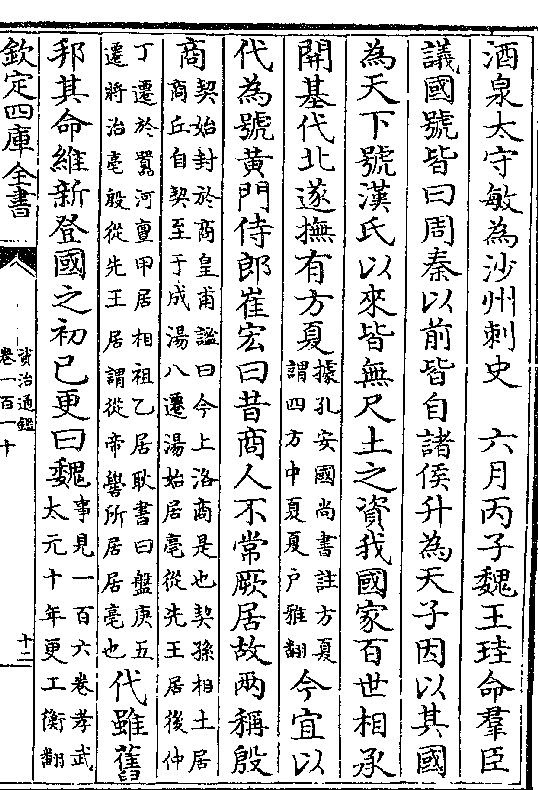 酒泉太守敏為沙州刺史　六月丙子魏王珪命羣臣
議國號皆曰周秦以前皆自諸侯升為天子因以其國
為天下號漢氏以來皆無尺土之資我國家百世相承
開基代北遂撫有方夏據孔安國尚書註方夏謂四方中夏夏户雅翻今宜以
代為號黄門侍郎崔宏曰昔商人不常厥居故兩稱殷
商契始封於商皇甫謐曰今上洛商是也契孫相土居商丘自契至于成湯八遷湯始居亳從先王居後仲
丁遷於囂河亶甲居相祖乙居耿書曰盤庚五遷將治亳殷從先王居謂從帝嚳所居居亳也代雖舊
邦其命維新登國之初已更曰魏事見一百六卷孝武太元十年更工衡翻
欽定四庫全書
資治通鑑
卷一百一十
十二